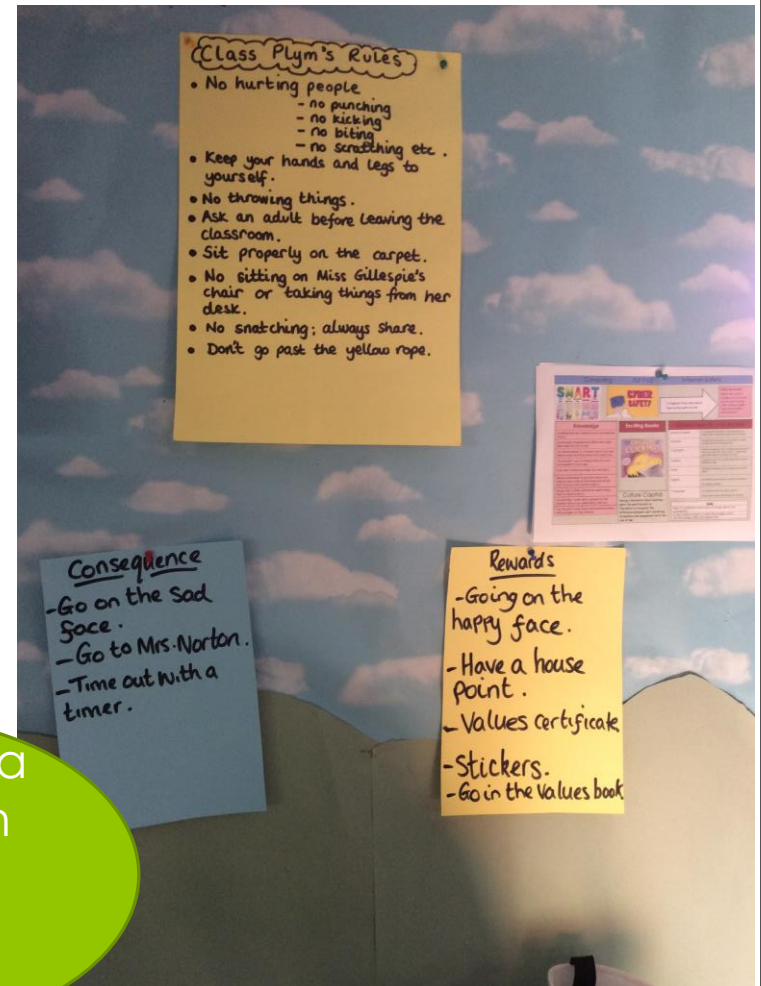 Class Plym's Rules
• No hurting people
- no punching
- no kicking
- no biting
- no scratching etc.
• Keep your hands and legs to
yourself.
• No throwing things.
• Ask an adult before leaving the
classroom.
• Sit properly on the carpet.
• No sitting on Miss Gillespie's
chair or taking things from her
desk.
• No snatching; always share.
• Don't go past the yellow rope.
Computing
Internet Safety
SMART
CYBER
SAFETY
Knowledge
Exciting Books
Culture Capital
Consequence
-Go on the sad
face.
-Go to Mrs.Norton.
-Time out with a
timer.
Rewards
-Going on the
happy face.
-Have a house
point.
-Values certificate
-Stickers.
-Go in the values book
a